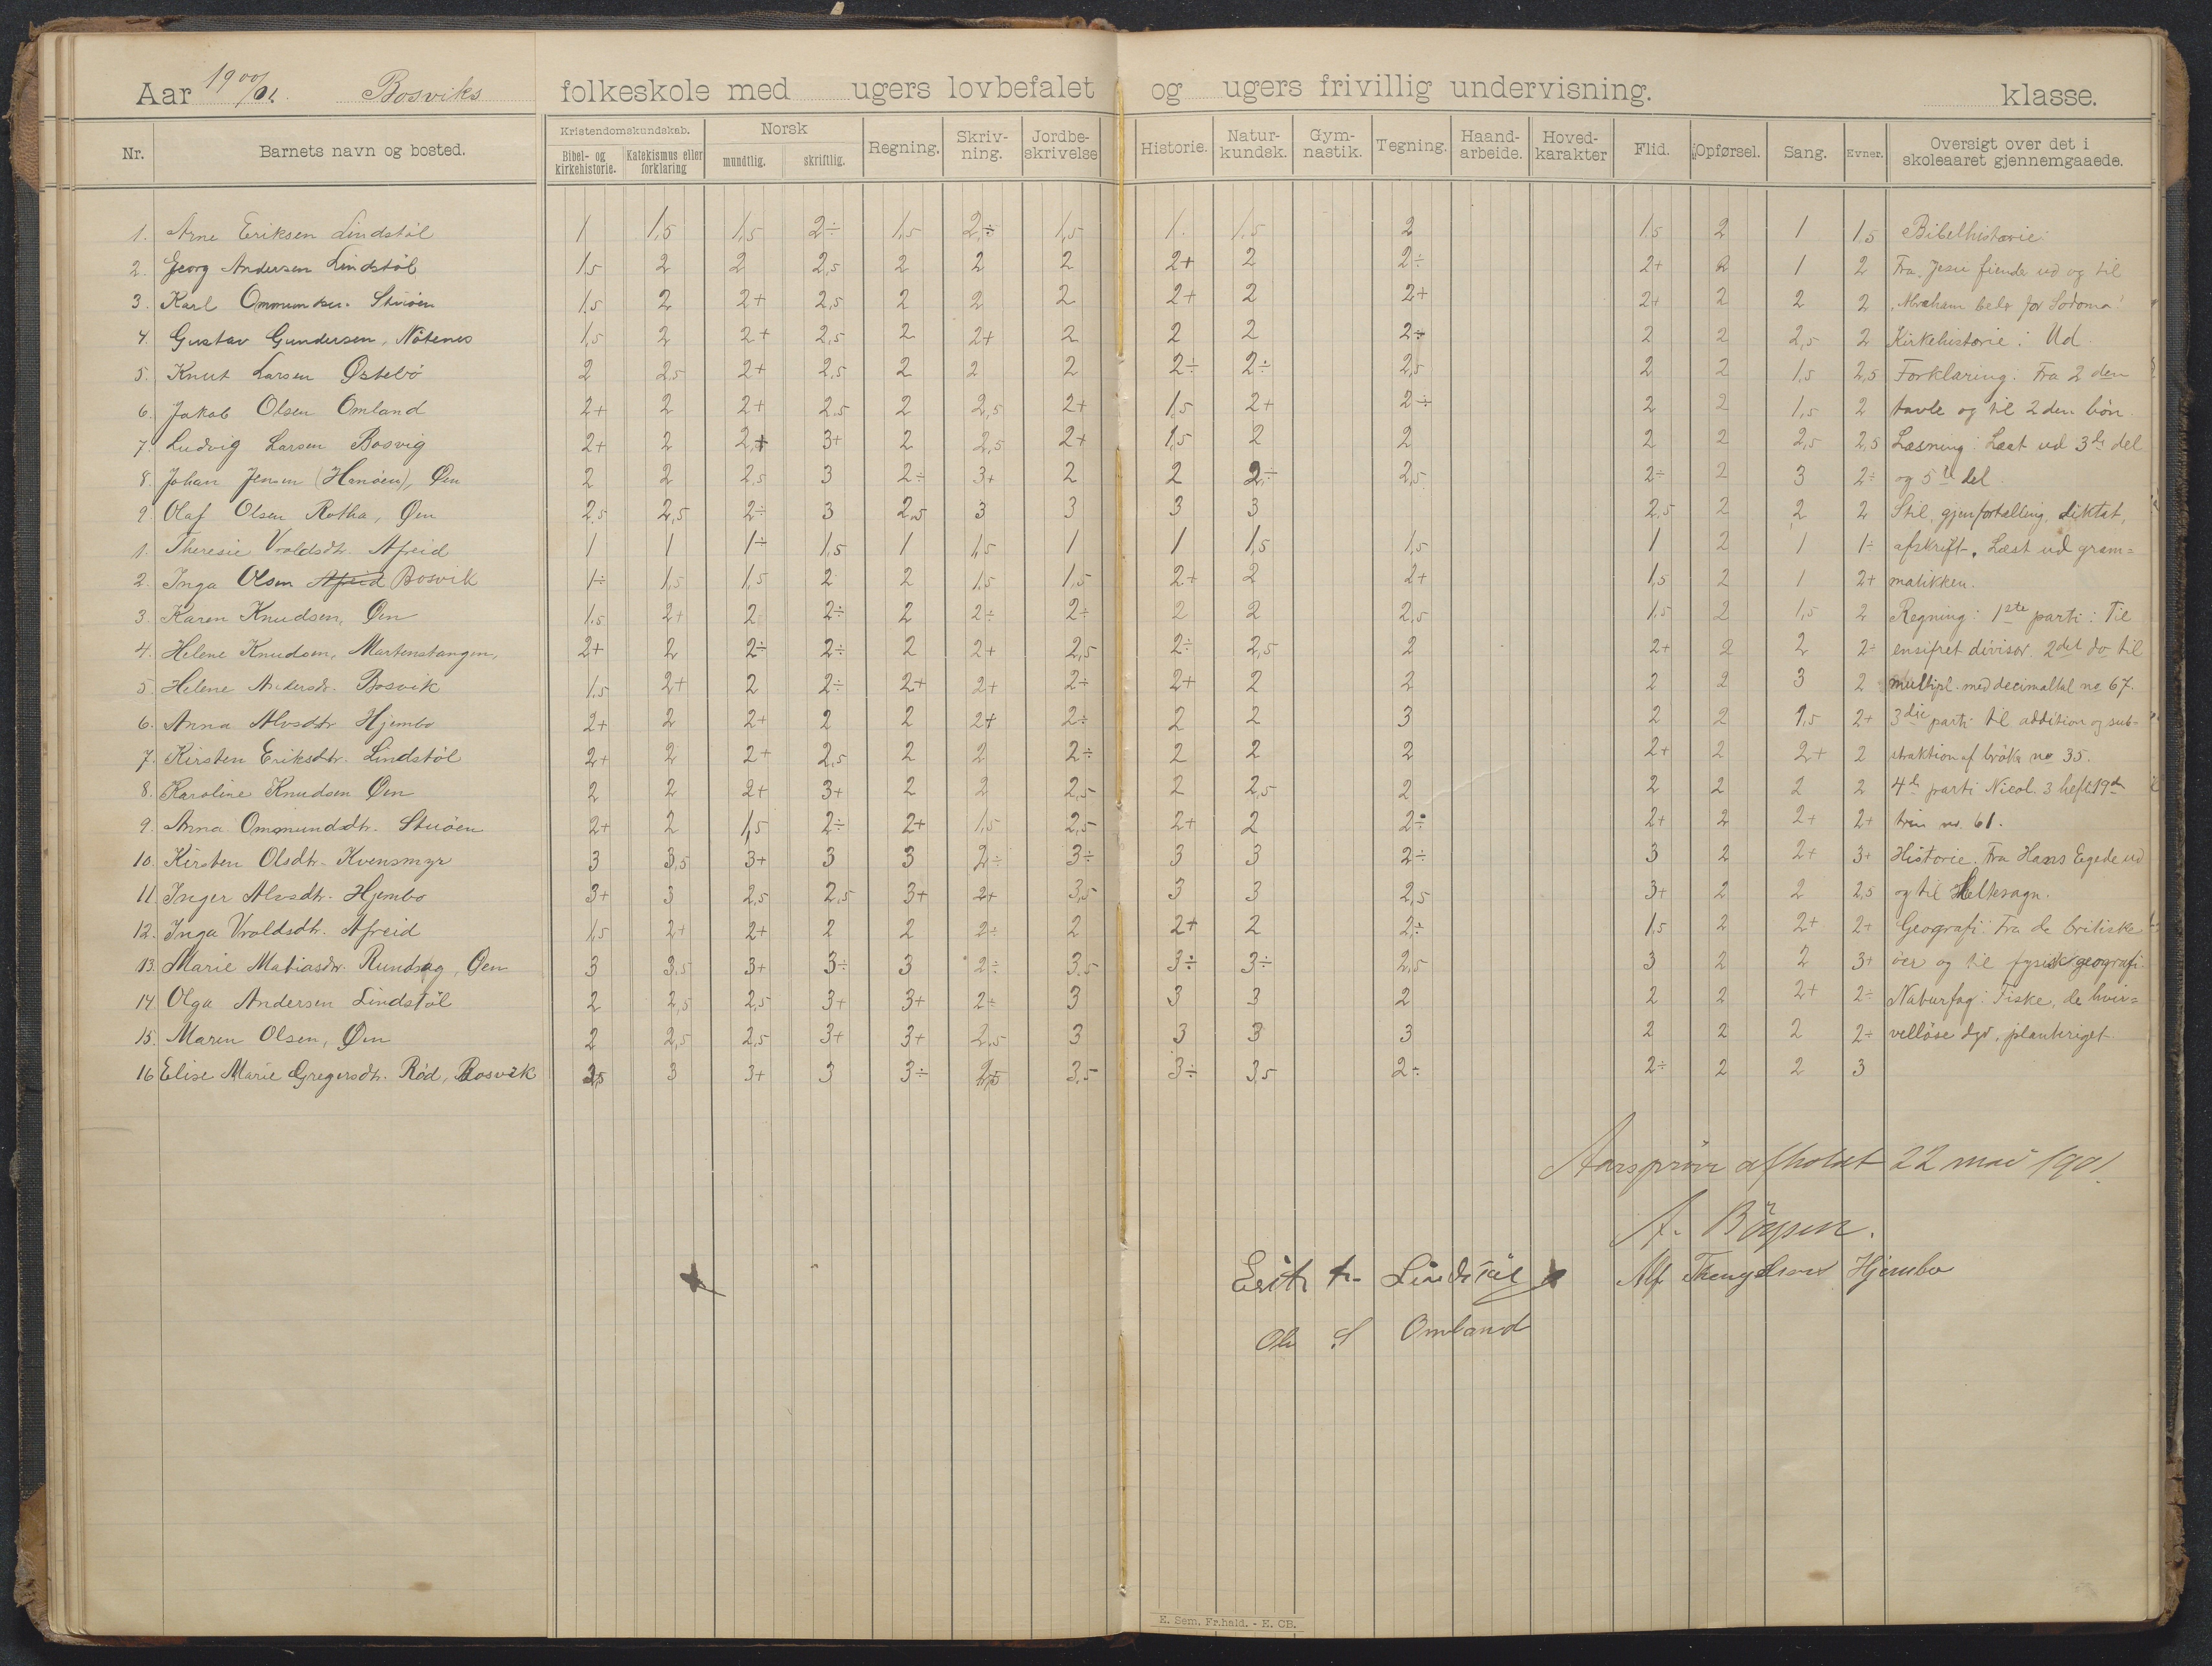 Aar 1900/01. Bosviks folkeskole med ugers lovbefalet og ugers frivillig undervisning. klasse.
Nr. Barnets navn og bosted. Kristendomskundskab. Bibel- og kirkehistorie. Katekismus eller forklaring Norsk mundtlig. skriftlig. Regning. Skriv-ning. Jordbe-skrivelse Historie. Natur-kundsk. Gym-nastik. Tegning. Haand-arbeide. Hoved-karakter Flid. Opførsel. Sang. Evner. Oversigt over det i skoleaaret gjennemgaaede.
1. Arne Eriksen Lindstöl 1 1,5 1,5 2÷ 1,5 2÷ 1,5 1. 1.5 2 1.5 2 1 1,5 Bibelhistorie:
2. Georg Andersen Lindstöl 1,5 2 2 2,5 2 2 2 2+ 2 2÷ 2+ 2 1 2 Fra Jesu fiender ud og til
3. Karl Ommundsen 1.5 2 2+ 2,5 2 2 2 2+ 2 2+ 2+ 2 2 2 "Abraham beder for Sodoma"
4. Gustav Gundersen, Nötenes 1,5 2 2+ 2,5 2 2+ 2 2 2 2÷ 2 2 2,5 2 Kirkehistorie: Ud.
5. Knut Larsen Østebö 2 2,5 2+ 2,5 2 2 2 2÷ 2÷ 2,5 2 2 1,5 2,5 Forklaring: Fra 2den
6. Jakob Olsen Omland 2+ 2 2+ 2,5 2 2,5 2+ 1,5 2+ 2÷ 2 2 1,5 2 tavle og til 2den bön.
7. Ludvig Larsen Bosvig 2+ 2 2+ 3+ 2 2,5 2+ 1,5 2 2 2 2 2,5 2,5 Læsning: Læst ud 3de del
8. Johan Jensen (Hanöen), Øen 2 2 2.5 3 2÷ 3+ 2 2 2÷ 2,5 2÷ 2 3 2÷ og 5te del.
9. Olaf Olsen Rotha, Øen 2,5 2,5 2÷ 3 2,5 3 3 3 3 2,5 2 2 2 Stil, gjenfortælling, diktat,
1. Theresie Vraldsdtr. Afreid 1 1 1÷ 1,5 1 1,5 1 1 1,5 1,5 1 2 1 1÷ afskrift. Læst ud gram=
2. Inga Olsen Afreid Bosvik 1÷ 1,5 1,5 2 2 1,5 1,5 2+ 2 2+ 1,5 2 1 2+ matikken.
3. Karen Knudsen, Øen 1.5 2+ 2 2÷ 2 2÷ 2÷ 2 2 2,5 1,5 2 1,5 2 Regning: 1ste parti: Til
4. Helene Knudsen, Martenstangen, 2+ 2 2÷ 2÷ 2 2+ 2,5 2÷ 2,5 2 2+ 2 2 2÷ ensifret divisor. 2det do til
5. Helene Andersdr. Bosvik 1.5 2+ 2 2÷ 2+ 2+ 2÷ 2+ 2 2 2 2 3 2 multipl. med decimaltal no 67.
6. Anna Alvsdtr Hjembo 2+ 2 2+ 2 2 2+ 2÷ 2 2 3 2 2 1,5 2+ 3die parti til addition og sub-
7. Kirsten Eriksdtr. Lindstöl 2+ 2 2+ 2,5 2 2 2÷ 2 2 2 2+ 2 2+ 2 straktion af bröker no 35.
8. Karoline Knudsen Øen 2 2 2+ 3+ 2 2 2,5 2 2,5 2 2 2 2 2 4de parti Nicol. 3 hefte 19de
9. Anna Ommundsdtr. 2+ 2 1,5 2÷ 2+ 1,5 2,5 2+ 2 2÷ 2+ 2 2+ 2+ trin no. 61.
10. Kirsten Olsdtr. Kvensmyr 3 3,5 3+ 3 3 2÷ 3÷ 3 3 2÷ 3 2 2+ 3+ Historie. Fra Hans Egede ud
11. Inger Alvsdtr. Hjembo 3+ 3 2,5 2,5 3+ 2+ 3,5 3 3 2,5 3+ 2 2 2,5 og til Heltesagn.
12. Inga Vraldsdtr. Afreid 1,5 2+ 2+ 2 2 2÷ 2 2+ 2 2÷ 1,5 2 2+ 2+ Geografi: Fra de britiske
13. Marie Matiasdr. Rundsag, Øen 3 3,5 3+ 3÷ 3 2÷ 3.5 3÷ 3÷ 2,5 3 2 2 3+ öer og til fysisk geografi.
14 Olga Andersen Lindstöl 2 2,5 2,5 3+ 3+ 2÷ 3 3 3 2 2 2 2+ 2÷ Naturfag: Fiske, de hvir=
15. Maren Olsen, Øen 2 2,5 2,5 3+ 3+ 2,5 3 3 3 3 2 2 2 2÷ vellöse dyr, planteriget.
16 Elise Marie Gregersdtr. Röd, Bosvik 2,5 3 3+ 3 3÷ 2,5 3,5 3÷ 3,5 2÷ 2÷ 2 2 3
Aarspröve afholdt 22 mai 1901.
A. Böysen.
Erik Lindstöl Alf Hjembo
Ole S Omland
E. Sem. Fr.hald. - E. CB.